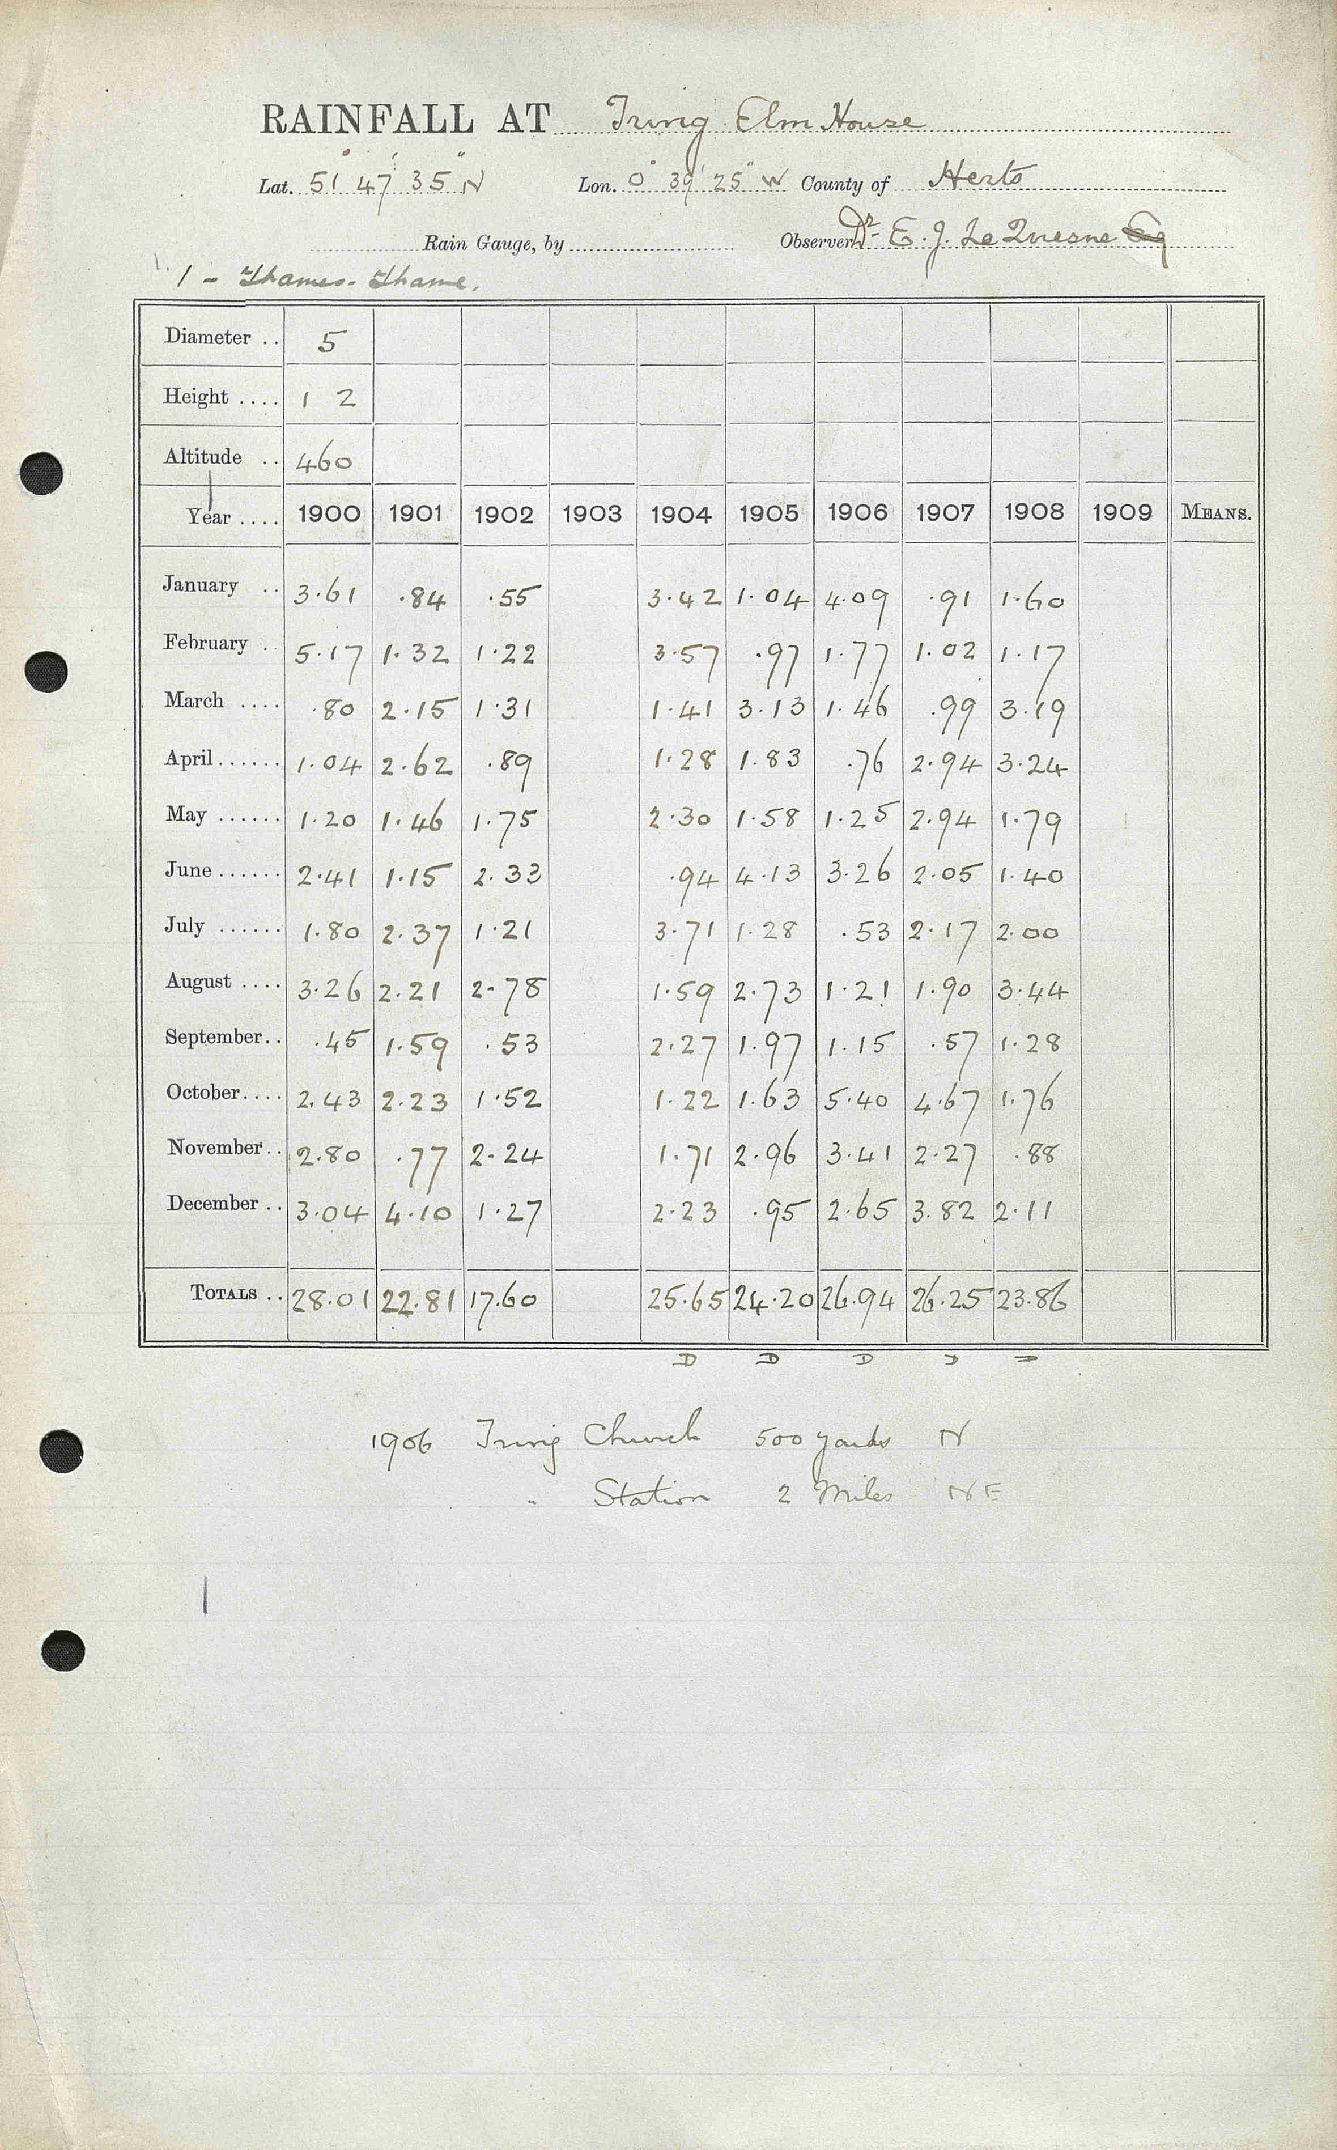 RAINFALL AT Tring Elm House
Lat. 51° 47' 35" N Lon. 0° 39' 25" W County of Herts
Rain Gauge, by Observer Dr. E. J. Le Quesne
1 - Thames - Thame.
Diameter .. 5
Height .... 1 2
Altitude .. 460
Year .... 1900 1901 1902 1903 1904 1905 1906 1907 1908 1909 MEANS.
January .. 3.61 .84 .55 3.42 1.04 4.09 .91 1.60
February .. 5.17 1.32 1.22 3.57 .97 1.77 1.02 1.17
March .... .80 2.15 1.31 1.41 3.13 1.46 .99 3.19
April ...... 1.04 2.62 .89 1.28 1.83 .76 2.94 3.24
May ...... 1.20 1.46 1.75 2.30 1.58 1.25 2.94 1.79
June ...... 2.41 1.15 2.33 .94 4.13 3.26 2.05 1.40
July ...... 1.80 2.37 1.21 3.71 1.28 .53 2.17 2.00
August .... 3.26 2.21 2.78 1.59 2.73 1.21 1.90 3.44
September .. .45 1.59 .53 2.27 1.97 1.15 .57 1.28
October .... 2.43 2.23 1.52 1.22 1.63 5.40 4.67 1.76
November .. 2.80 .77 2.24 1.71 2.96 3.41 2.27 .88
December .. 3.04 4.10 1.27 2.23 .95 2.65 3.82 2.11
TOTALS .. 28.01 22.81 17.60 25.65 24.20 26.94 26.25 23.86
D D D D D
1906 Tring Church 500 yards N
" Station 2 Miles NE